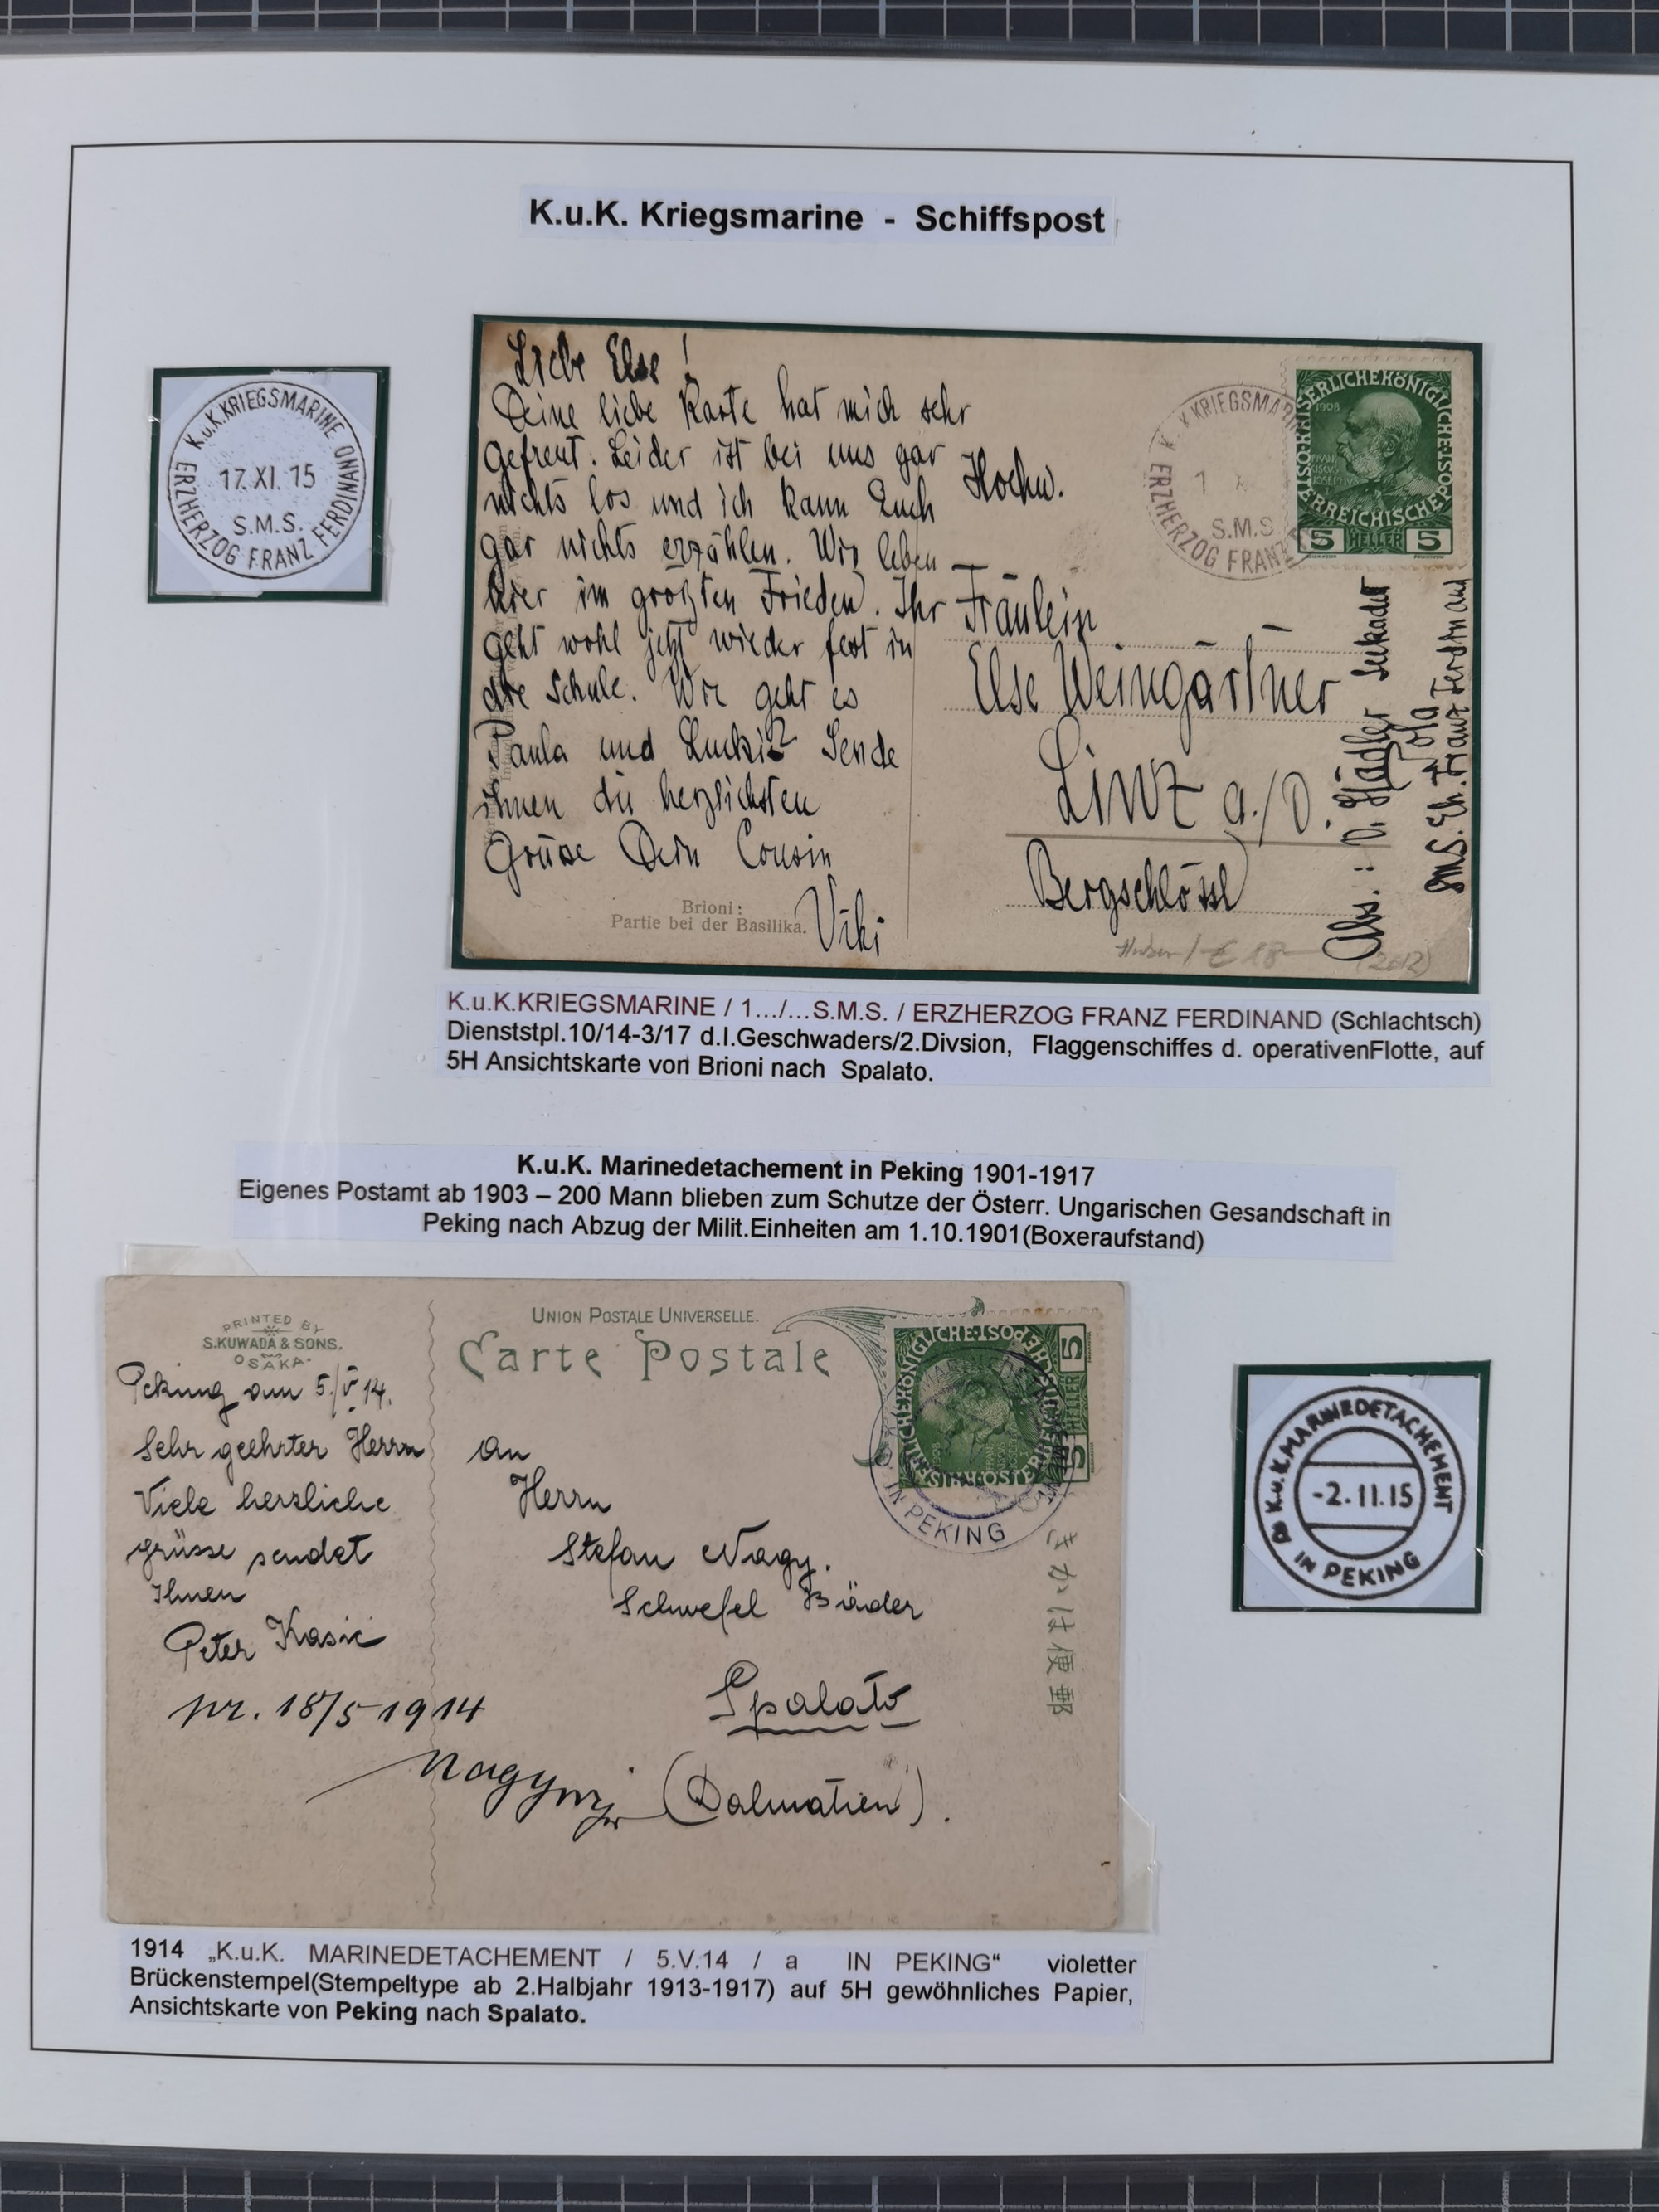 K.u.K. Kriegsmarine - Schiffspost
K.u.K.KRIEGSMARINE
17. XI. 15
S.M.S.
ERZHERZOG FRANZ FERDINAND
Liebe Else!
Deine liebe Karte hat mich sehr
gefreut. Leider ist bei uns gar
nichts los und ich kann Euch
gar nichts erzählen. Wir leben
hier im größten Frieden. Ihr
geht wohl jetzt wieder fest in
die Schule. Wie geht es
Paula und Lucki? Sende
ihnen die herzlichsten
Grüsse Dein Cousin
Viki
Brioni:
Partie bei der Basilika.
K. K KRIEGSMARIN
1
S.M.S
ERZHERZOG FRANZ
KAISERLICHE KÖNIGLICHE
ÖSTERREICHISCHE POST
1908
FRAN
CISCUS
JOSEPHUS
5 HELLER 5
Hochw.
Fräulein
Else Weingärtner
Linz a./D.
Bergschlössl
Abs.: V. Hädler Seekadet
Pola
SMS. Eh. Franz Ferdinand
€ 18
(2012)
K.u.K.KRIEGSMARINE / 1.../...S.M.S. / ERZHERZOG FRANZ FERDINAND (Schlachtsch)
Dienststpl.10/14-3/17 d.I.Geschwaders/2.Divsion, Flaggenschiffes d. operativenFlotte, auf
5H Ansichtskarte von Brioni nach Spalato.
K.u.K. Marinedetachement in Peking 1901-1917
Eigenes Postamt ab 1903 – 200 Mann blieben zum Schutze der Österr. Ungarischen Gesandschaft in
Peking nach Abzug der Milit.Einheiten am 1.10.1901(Boxeraufstand)
PRINTED BY
S.KUWADA & SONS.
OSAKA
UNION POSTALE UNIVERSELLE.
Carte Postale
Peking am 5./V 14.
Sehr geehrter Herrn
Viele herzliche
grüsse sendet
Ihnen
Peter Kasic
pr. 18/5 1914
Nagy
An
Herrn
Stefan Nagy.
Schwefel Bäder
Spalato
(Dalmatien).
5 HELLER 5
IN PEKING
きかは便郵
K.u.K.MARINEDETACHEMENT
-2.11.15
IN PEKING
1914 „K.u.K. MARINEDETACHEMENT / 5.V.14 / a IN PEKING“ violetter
Brückenstempel(Stempeltype ab 2.Halbjahr 1913-1917) auf 5H gewöhnliches Papier,
Ansichtskarte von Peking nach Spalato.